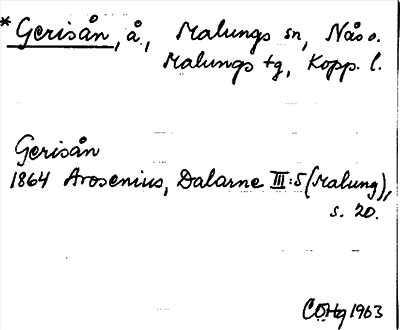 * Gerisån, å, Malungs sn, Nås o.
Malungs tg, Kopp. l.
Gerisån
1864 Arosenius, Dalarne III:5 (Malung),
s. 20.
COHg 1963